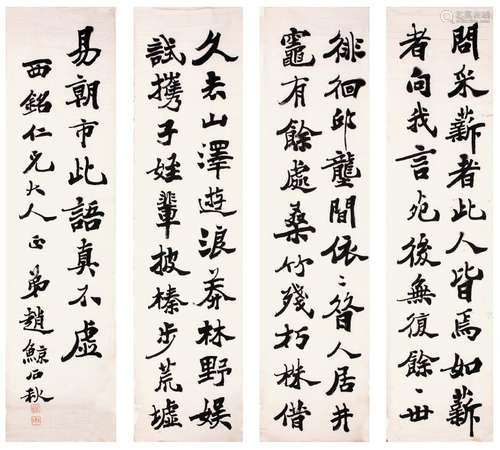 問采薪者此人皆焉如薪
者向我言死後無復餘一世
徘徊邱壟間依〻昔人居井
竈有餘處桑竹殘朽株借
久去山澤遊浪莽林野娛
試攜子姪輩披榛步荒墟
易朝市此語真不虛
西銘仁兄大人正 弟趙鯨石秋